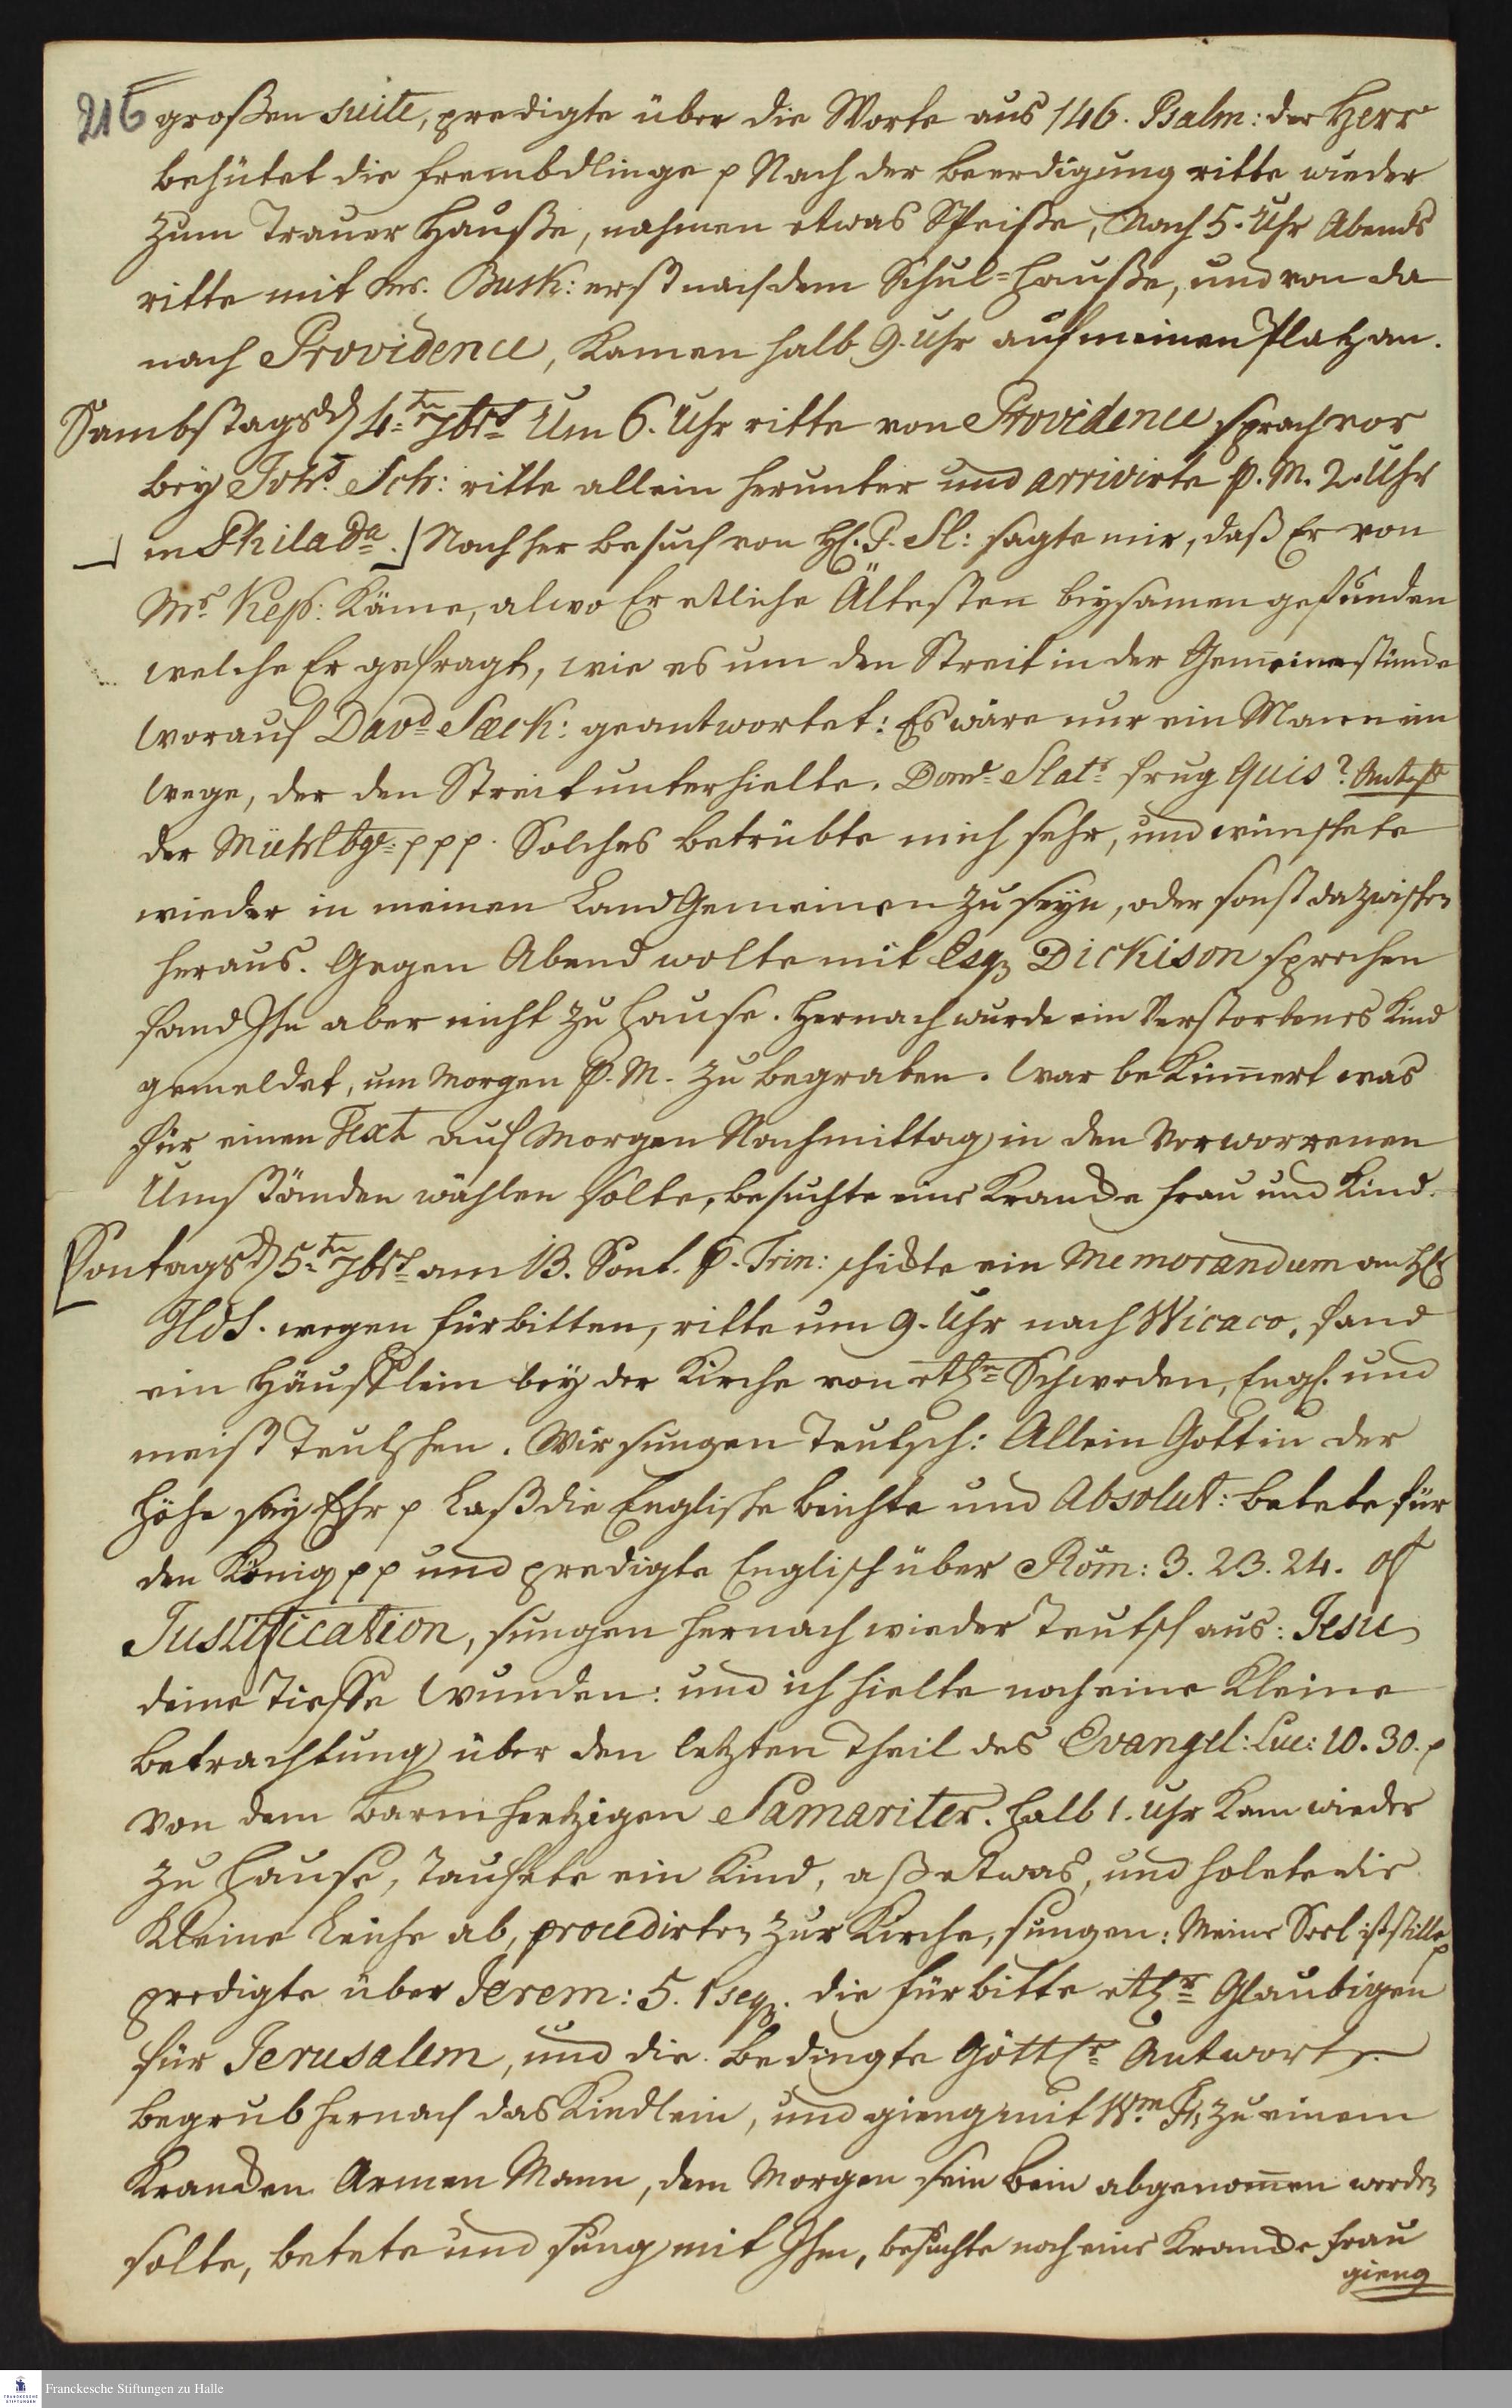 216 großen suite, predigte über die Worte aus 146. Psalm: der Herr
behütet die frembdlinge p Nach der Beerdigung ritte wieder
zum Trauer Hauße, nahmen etwas Speiße, Nach 5. Uhr Abends
ritte mit Mr. Busk: erst nach dem Schul=Hauße, und von da
nach Providence, kamen halb 9. Uhr auf meinen Platz an.
Sambstags d 4=ten 7br= Um 6. Uhr ritte von Providence sprach vor
bey Joh: Sch: ritte allein herunter und arrivirte p. M. 2. Uhr
in Philada. Nachher besuch von H. P. Sl: sagte mir, daß Er von
Mr. Kep: käme, alwo Er etliche Ältesten beysamen gefunden
welche Er gefragt, wie es um den Streit in der Gemeine stünde
worauf Davd= Sæck: geantwortet: Es wäre nur ein Mann im
Wege, der den Streit unterhielte. Domd= Slatr= frug quis? Antw.
der Mühlbge= ppp. Solches betrübte mich sehr, und wünschete
wieder in meinen Land Gemeinen zu seyn, oder sonst da zwischen
heraus. Gegen Abend wolte mit Esq Dickison sprechen
fand Ihn aber nicht zu Hause. Hernach wurde ein Verstorbenes Kind
gemeldet, um Morgen P. M. zu begraben. War bekümert was
für einen Text auf Morgen Nachmittag in den Verworrenen
Umständen wählen solte, besuchte eine Krancke frau und Kind.
Sontags d 5=ten 7br= am 13. Sont. p. Trin: schickte ein Memorandum an H
Hds. wegen fürbitten, ritte um 9. Uhr nach Wicaco, fand
ein Häufflein bey der Kirche von etl= Schweden, Engl. und
meist Teutschen. Wir sungen Teutsch: Allein Gott in der
Höhe sey Ehr p Laß die Englische beichte und Absolut: betete für
den König pp und predigte Englisch über Röm: 3. 23. 24. of
Justification, sungen hernach wieder Teutsch aus: Jesu
deine Tieffe Wunden: und ich hielte noch eine Kleine
Betrachtung über den letzten Theil des Evangel: Luc: 10. 30. p
Von dem Barmhertzigen Samariter. halb 1. Uhr kam wieder
zu Hause, Taufete ein Kind, aß etwas, und holete die
Kleine Leiche ab, procedirten zur Kirche, sungen: Meine Seel ist stille p
predigte über Jerem: 5. 1 seq. die fürbitte etlr= Glaubigen
für Jerusalem, und die bedingte Göttle= Antwort.
Begrub hernach das Kindlein, und gieng mit Wm. F: zu einem
Krancken Armen Mann, dem Morgen sein Bein abgenomen werden
solte, betete und sung mit Ihm, besuchte noch eine Krancke frau
gieng
Franckesche Stiftungen zu Halle